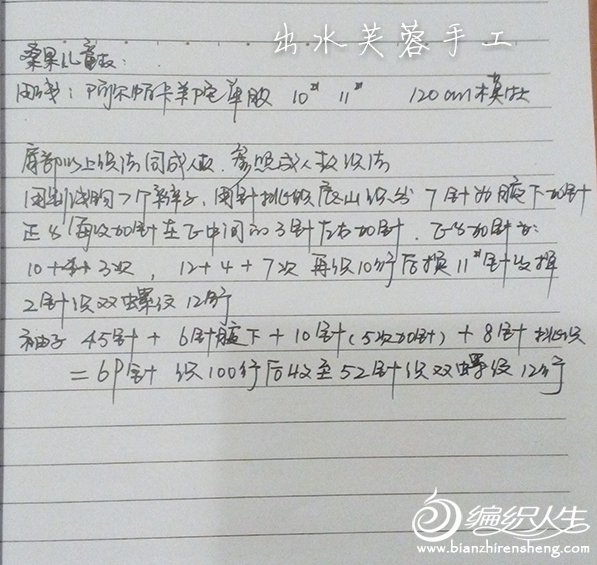 出水芙蓉手工
桑果儿童款:
用线: 阿尔帕卡羊驼单股 10# 11# 120cm模特
肩部以上织法同成人款. 参照成人款织法
用别线钩7个辫子, 用针挑织底山织出7针为腋下加针
正身每次加针在中间的3针左右加针.
10+4+3次, 12+4+7次 再织10行后换11#针收掉
2针织双螺纹12行
袖子 45针 + 6针腋下 + 10针(5次加针) + 8针挑织
= 69针 织100行后收至52针织双螺纹12行
编织人生
www.bianzhirensheng.com